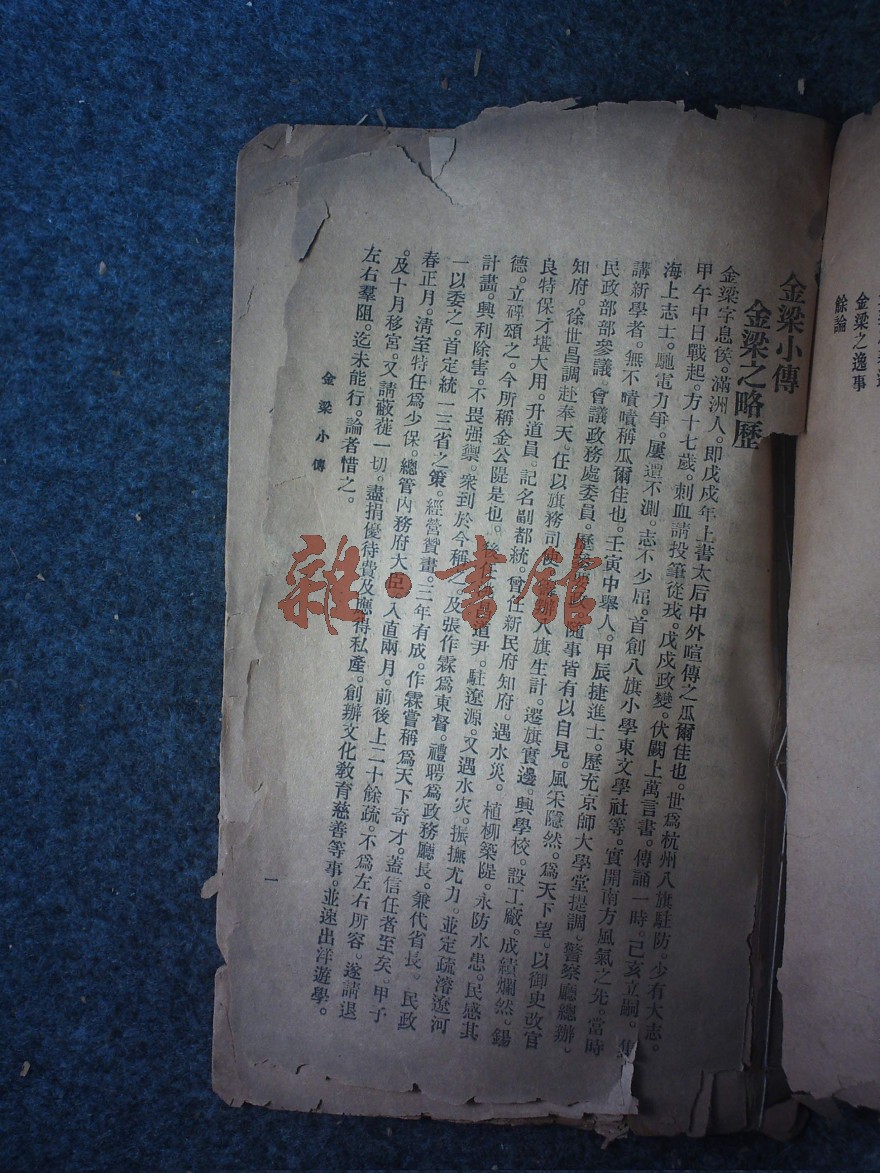 餘論
金梁之逸事
金梁小傳
金梁之略歷
金梁字息侯。滿洲人。卽戊戌年上書太后中外喧傳之瓜爾佳也。世爲杭州八旗駐防。少有大志。
甲午中日戰起。方十七歲。刺血請投筆從戎。戊戌政變。伏闕上萬言書。傳誦一時。己亥立嗣。集
海上志士。馳電力爭。屢遭不測。志不少屈。首創八旗小學東文學社等。實開南方風氣之先。當時
講新學者。無不嘖嘖稱瓜爾佳也。壬寅中舉人。甲辰捷進士。歷充京師大學堂提調。警察廳總辦。
民政部部參議。會議政務處委員。歷參政。隨事皆有以自見。風采隱然。爲天下望。以御史改官
知府。徐世昌調赴奉天。任以旗務司使。辦八旗生計。遷旗實邊。興學校。設工廠。成績爛然。錫
良特保才堪大用。升道員。記名副都統。曾任新民府知府。遇水災。植柳築隄。永防水患。民感其
德。立碑頌之。今所稱金公隄是也。道尹。駐遼源。又遇水灾。振撫尤力。並定疏濬遼河
計畫。興利除害。不畏强禦。衆到於今稱之。及張作霖爲東督。禮聘爲政務廳長。兼代省長。民政
一以委之。首定統一三省之策。經營贊畫。三年有成。作霖嘗稱爲天下奇才。蓋信任者至矣。甲子
春正月。淸室特任爲少保。總管內務府大臣。入直兩月。前後上二十餘疏。不爲左右所容。遂請退
。及十月移宮。又請蔽蓰一切。盡捐優待費及應得私產。創辦文化敎育慈善等事。並速出洋遊學。
左右羣阻。迄未能行。論者惜之。
金梁小傳
一
雜·書館